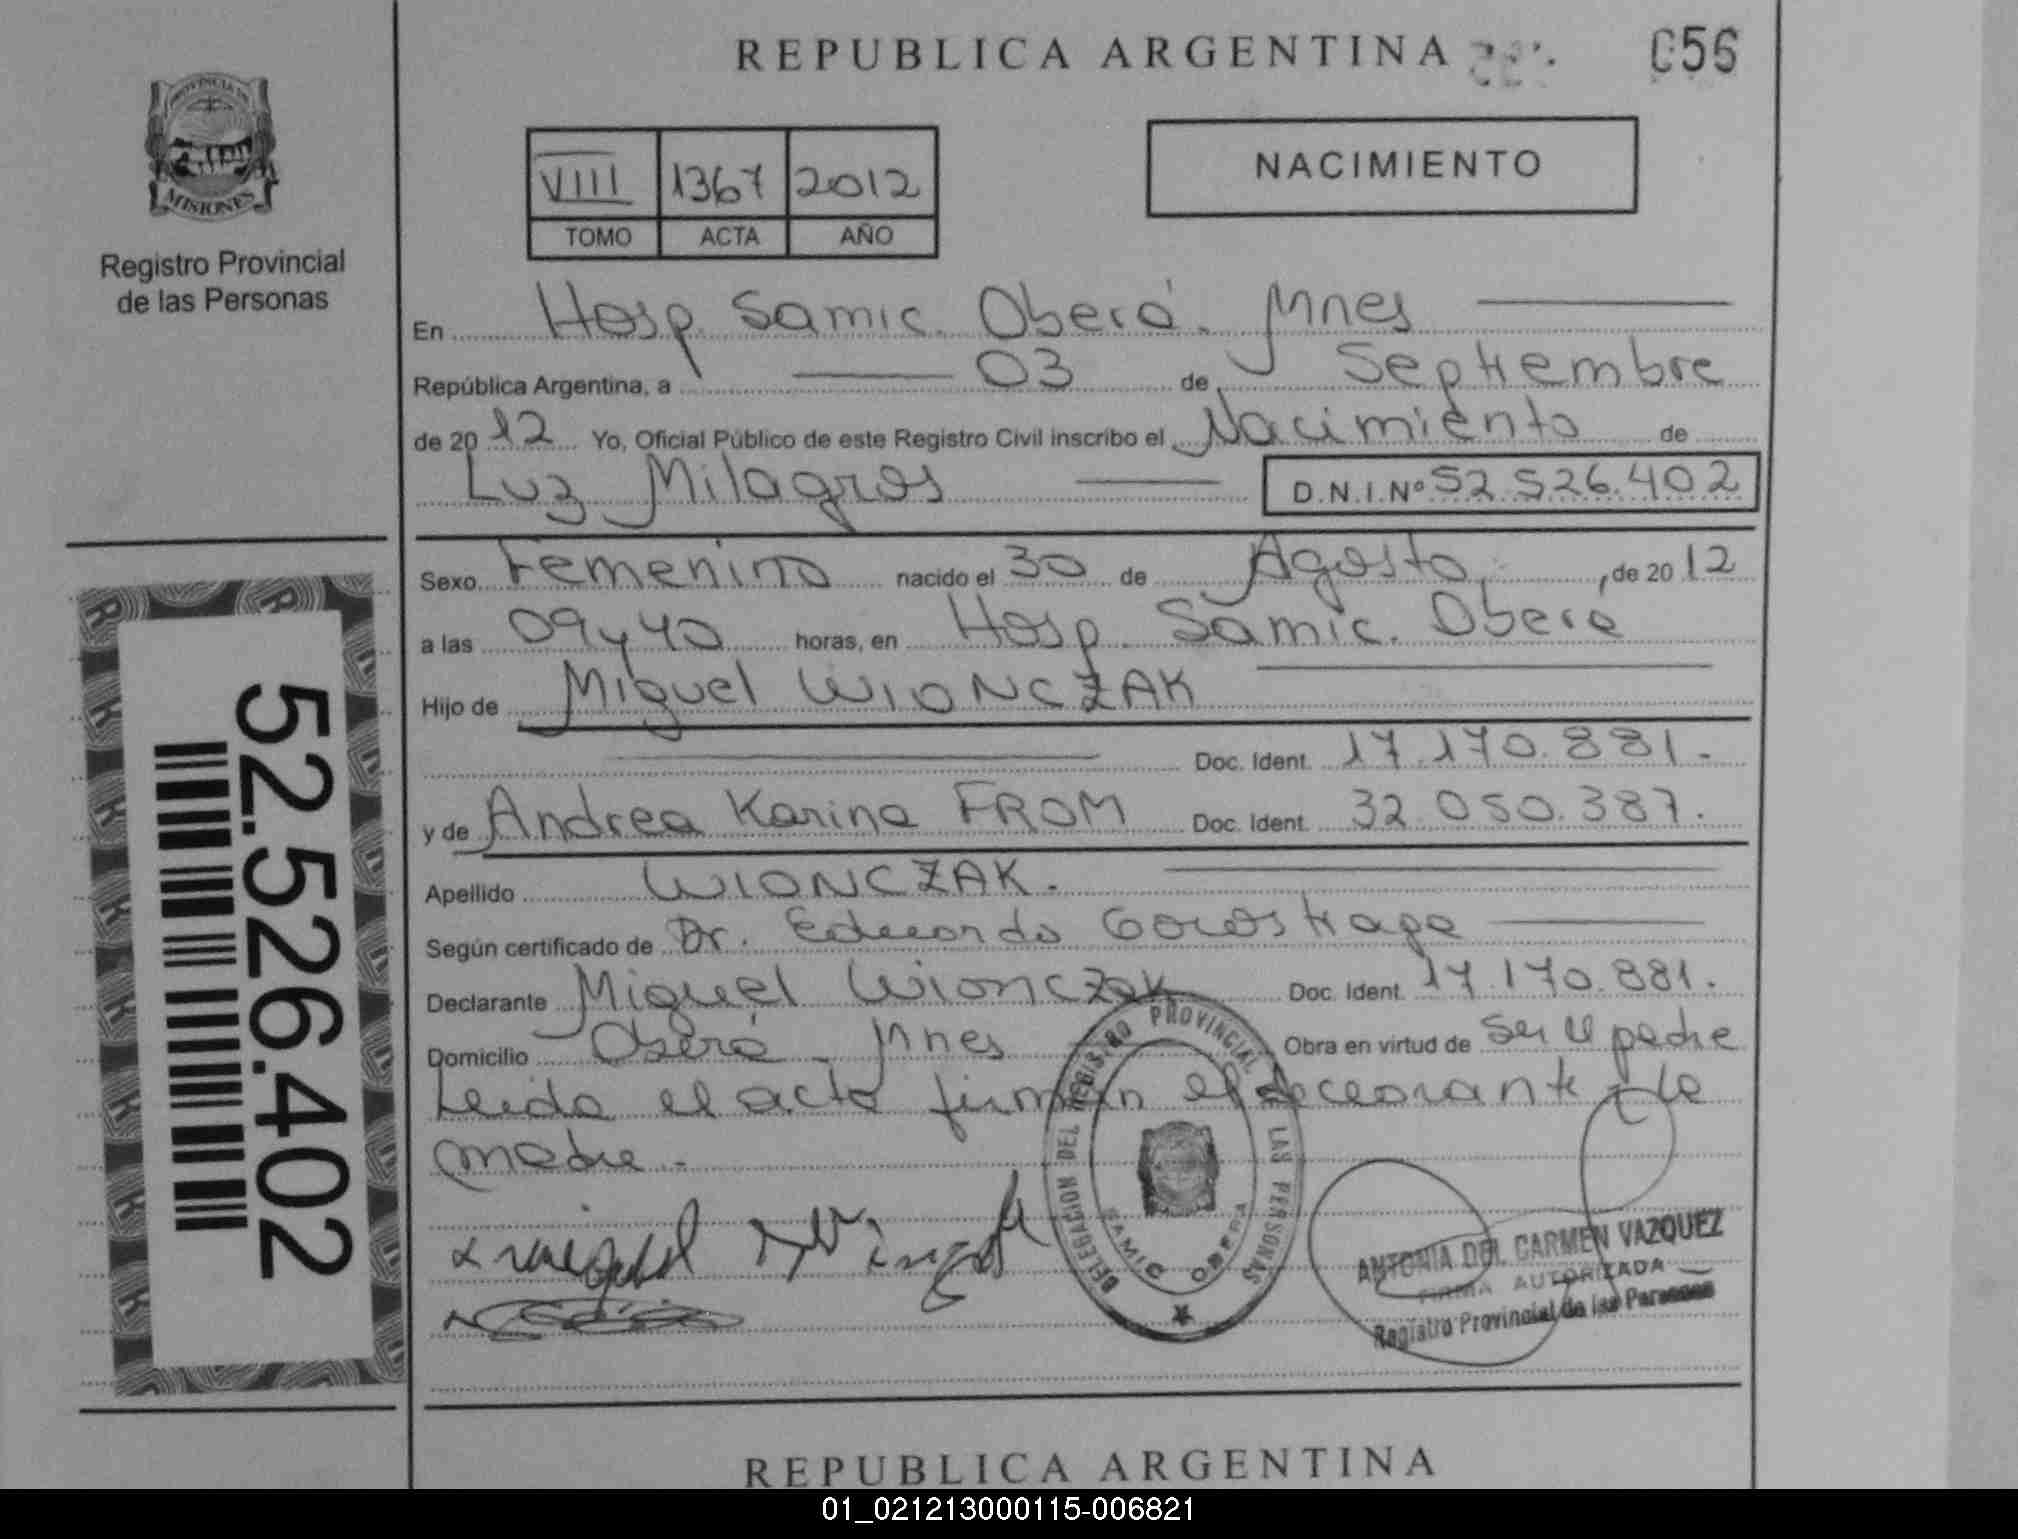 REPUBLICA ARGENTINA
056
PROVINCIA DE
MISIONES
Registro Provincial
de las Personas
NACIMIENTO
VIII 1367 2012
TOMO ACTA AÑO
En Hosp. Samic. Oberá. Mnes
República Argentina, a 03 de Septiembre
de 20 12 Yo, Oficial Público de este Registro Civil inscribo el Nacimiento de
Luz Milagros D.N.I.Nº 52.526.402
Sexo Femenino nacido el 30 de Agosto, de 20 12
a las 09y40 horas, en Hosp. Samic. Oberá
Hijo de Miguel WIONCZAK
Doc. Ident. 17.170.881.-
y de Andrea Karina FROM Doc. Ident. 32.050.387.
Apellido WIONCZAK.
Según certificado de Dr. Eduardo
Declarante Miguel Wionczak Doc. Ident. 17.170.881.
Domicilio Oberá - Mnes Obra en virtud de Ser el padre
Leida el acta firman el declarante y la
madre.-
DELEGACION DEL REGISTRO PROVINCIAL DE LAS PERSONAS
SAMIC OBERA
ANTONIA DEL CARMEN VAZQUEZ
FIRMA AUTORIZADA
Registro Provincial de las Personas
52.526.402
REPUBLICA ARGENTINA
01_021213000115-006821